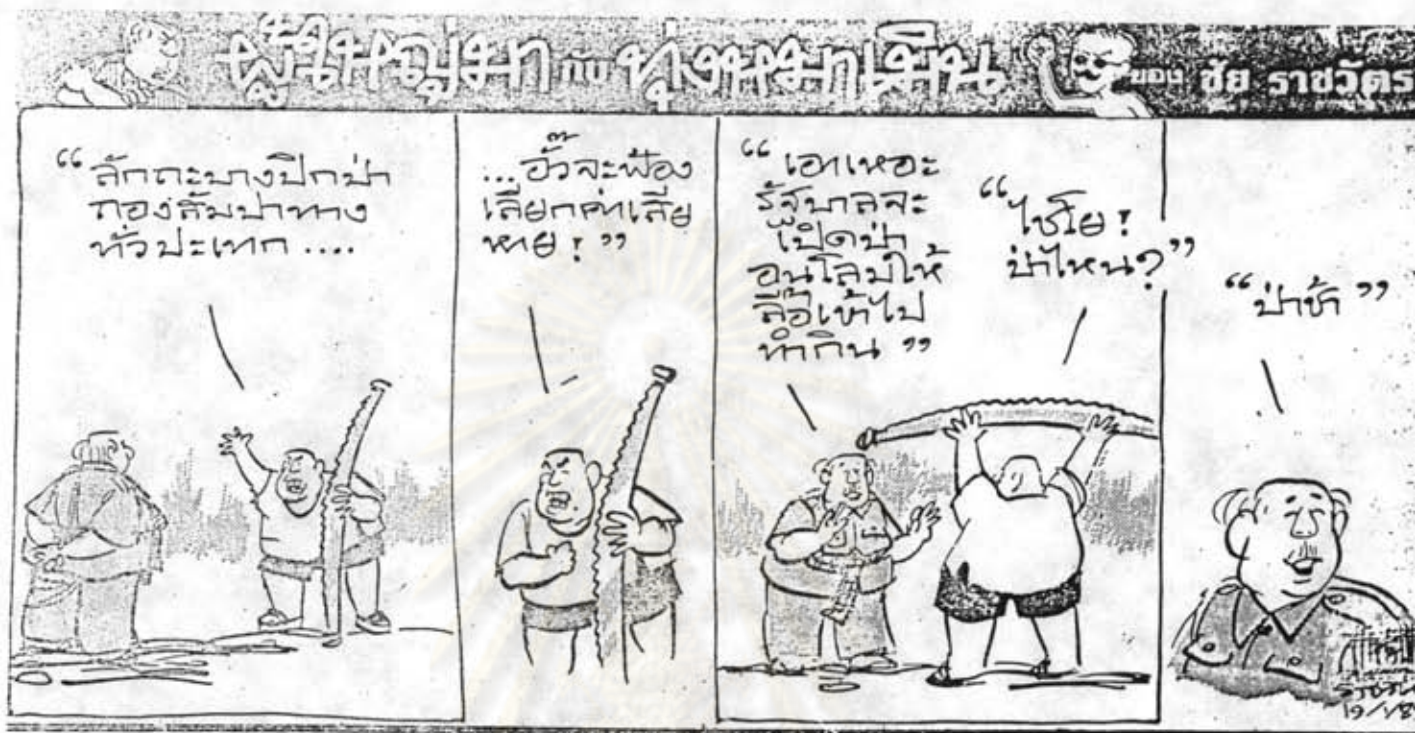 ผู้ใหญ่มากับทุ่งหมาเมิน ของ ชัย ราชวัตร
“ ลักถะบางปิกป่า
ถองสัมปาทาง
ทั่วปะเทก ....
... อั๊วจะฟ้อง
เลียกค่าเสีย
หาย ! ”
“ เอาเหอะ
รัฐบาลจะ
เปิดป่า
อนุโลมให้
ลื้อเข้าไป
ทำกิน ”
“ ไชโย !
ป่าไหน ? ”
“ ป่าช้า ”